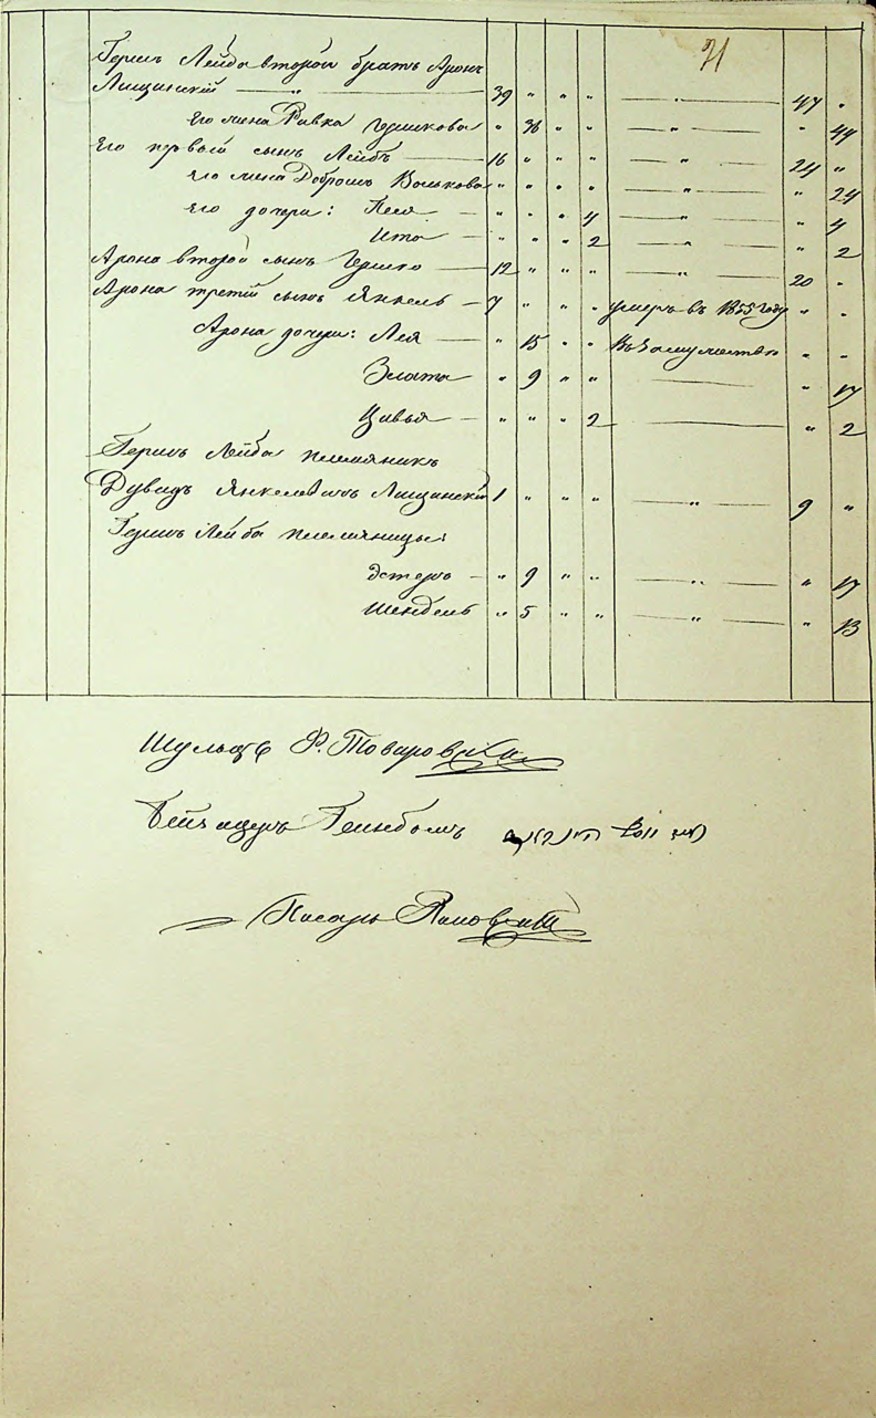 31
Герш Лейба второй братъ Аронъ
Лищинскій — " — 39 " " " — " — 47 "
Его жена Ривка Гершкова " 36 " " — " — " 44
Его первый сынъ Лейбъ — 16 " " " — " — 24 "
Его жена Доброшъ Волькова " " " " — " — " 24
Его дочери: Песя — " " " 4 — " — " 4
Ита — " " " 2 — " — " 2
Арона второй сынъ Гершко — 12 " " " — " — 20 "
Арона третій сынъ Янкель — 7 " " " умеръ въ 1855 году " "
Арона дочери: Лея — " 15 " " Въ замужестве " "
Злата " 9 " " — " 17
Цивья — " " " 2 — " 2
Гершъ Лейба племяникъ
Дувидъ Янкелевичъ Лищинскій 1 " " " — " — 9 "
Гершъ Лейба племяницы:
Эстеръ — " 9 " " — " — " 17
Шендель " 5 " " — " — " 13
Шульцъ Ф.
Гейнбомъ
Писарь